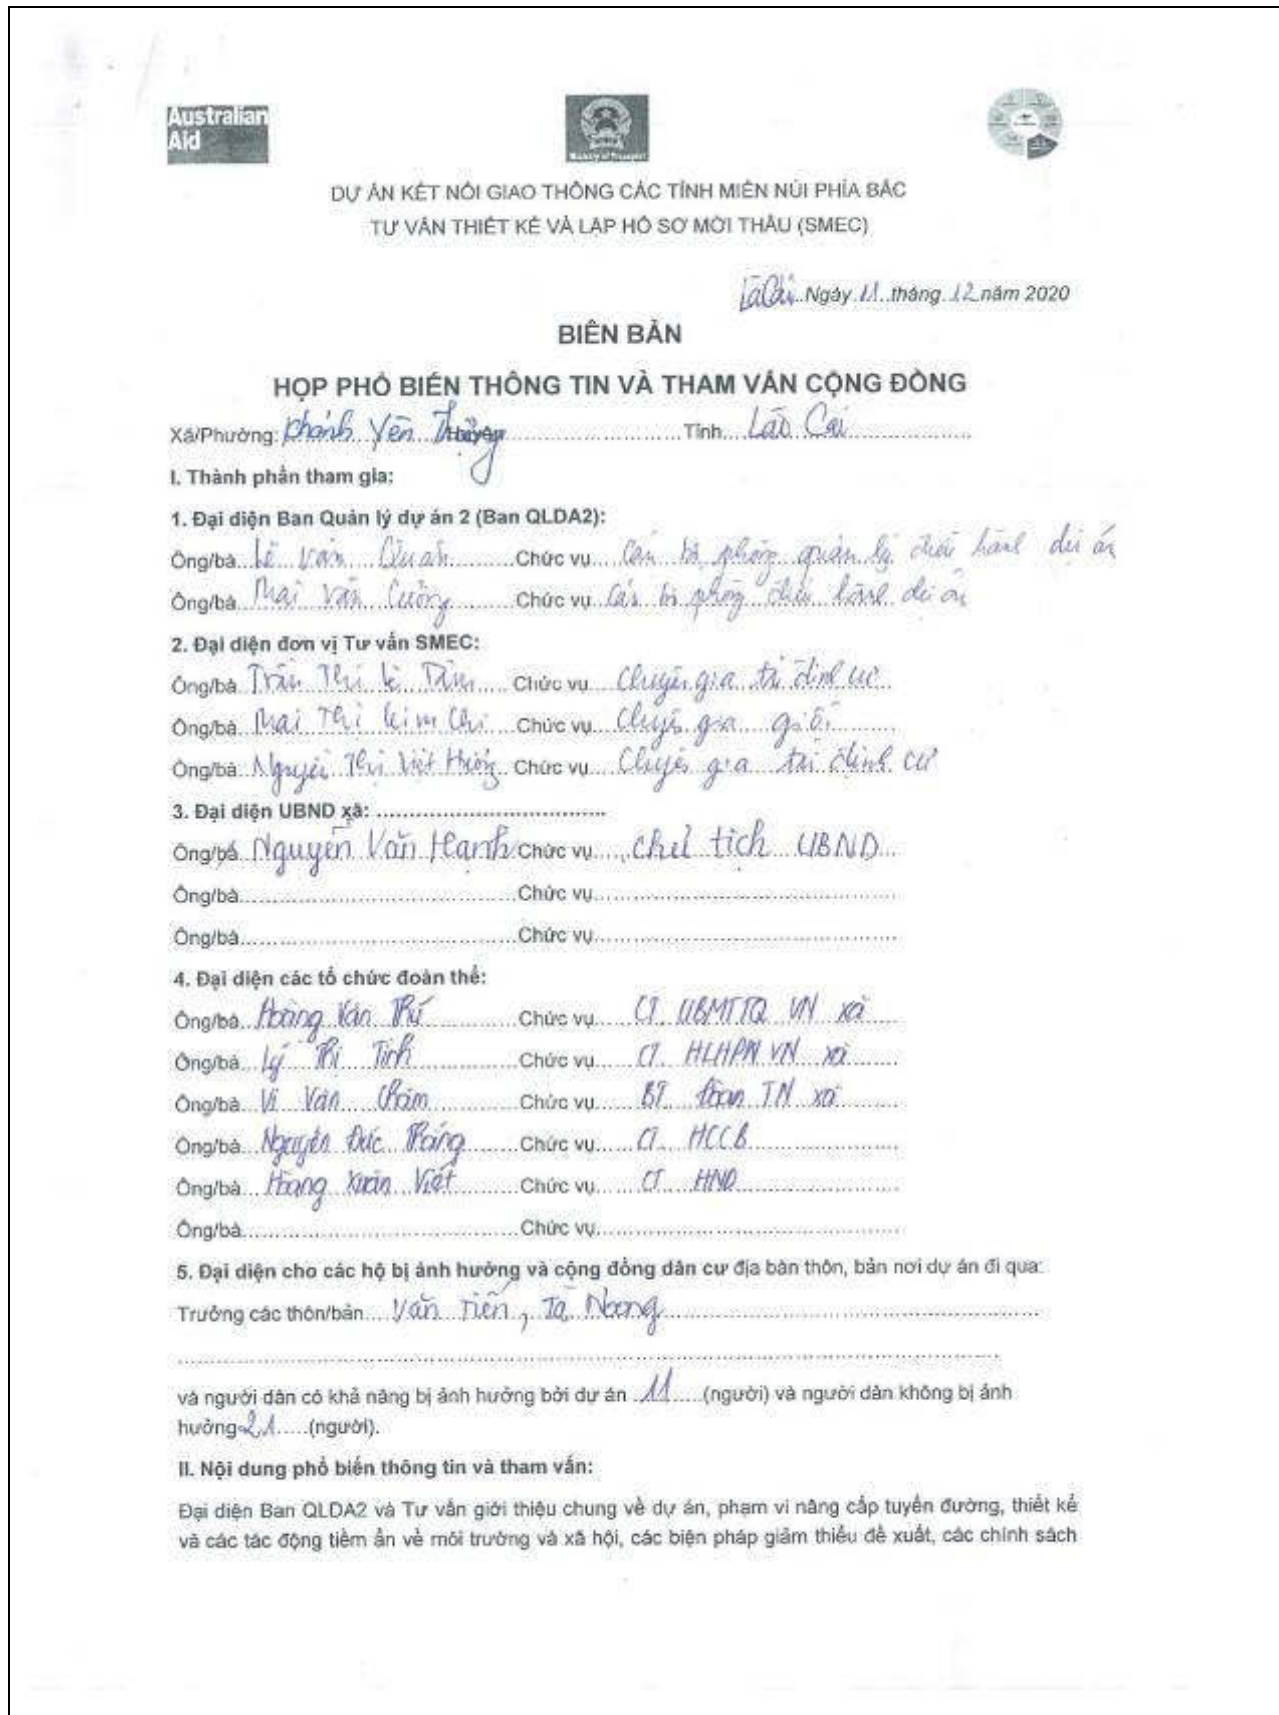 Australian
Aid
Ministry of Transport
DỰ ÁN KẾT NỐI GIAO THÔNG CÁC TỈNH MIỀN NÚI PHÍA BẮC
TƯ VẤN THIẾT KẾ VÀ LẬP HỒ SƠ MỜI THẦU (SMEC)
Ngày 11 tháng 12 năm 2020
BIÊN BẢN
HỌP PHỔ BIẾN THÔNG TIN VÀ THAM VẤN CỘNG ĐỒNG
Xã/Phường: Khánh Yên Thượng Huyện Tỉnh Lào Cai
I. Thành phần tham gia:
1. Đại diện Ban Quản lý dự án 2 (Ban QLDA2):
Ông/bà Lê Văn Chức vụ Cán bộ phòng quản lý điều hành dự án
Ông/bà Mai Văn Cường Chức vụ Cán bộ phòng điều hành dự án
2. Đại diện đơn vị Tư vấn SMEC:
Ông/bà Trần Thị Chức vụ Chuyên gia tái định cư
Ông/bà Mai Thị Kim Chi Chức vụ Chuyên gia giới
Ông/bà Nguyễn Thị Việt Hương Chức vụ Chuyên gia tái định cư
3. Đại diện UBND xã:
Ông/bà Nguyễn Văn Hạnh Chức vụ Chủ tịch UBND
Ông/bà Chức vụ
Ông/bà Chức vụ
4. Đại diện các tổ chức đoàn thể:
Ông/bà Hoàng Văn Thứ Chức vụ CT UBMTTQ VN xã
Ông/bà Lý Thị Tính Chức vụ CT HLHPN VN xã
Ông/bà Vi Văn Chức vụ BT Đoàn TN xã
Ông/bà Nguyễn Đức Thắng Chức vụ CT HCCB
Ông/bà Hoàng Xuân Viết Chức vụ CT HND
Ông/bà Chức vụ
5. Đại diện cho các hộ bị ảnh hưởng và cộng đồng dân cư địa bàn thôn, bản nơi dự án đi qua:
Trưởng các thôn/bản Văn Tiến, Tả Noong
và người dân có khả năng bị ảnh hưởng bởi dự án 11 (người) và người dân không bị ảnh
hưởng 21 (người).
II. Nội dung phổ biến thông tin và tham vấn:
Đại diện Ban QLDA2 và Tư vấn giới thiệu chung về dự án, phạm vi nâng cấp tuyến đường, thiết kế
và các tác động tiềm ẩn về môi trường và xã hội, các biện pháp giảm thiểu đề xuất, các chính sách